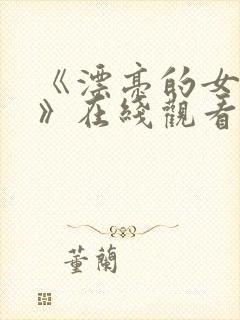 《漂亮的女
》在綫觀看
董蘭